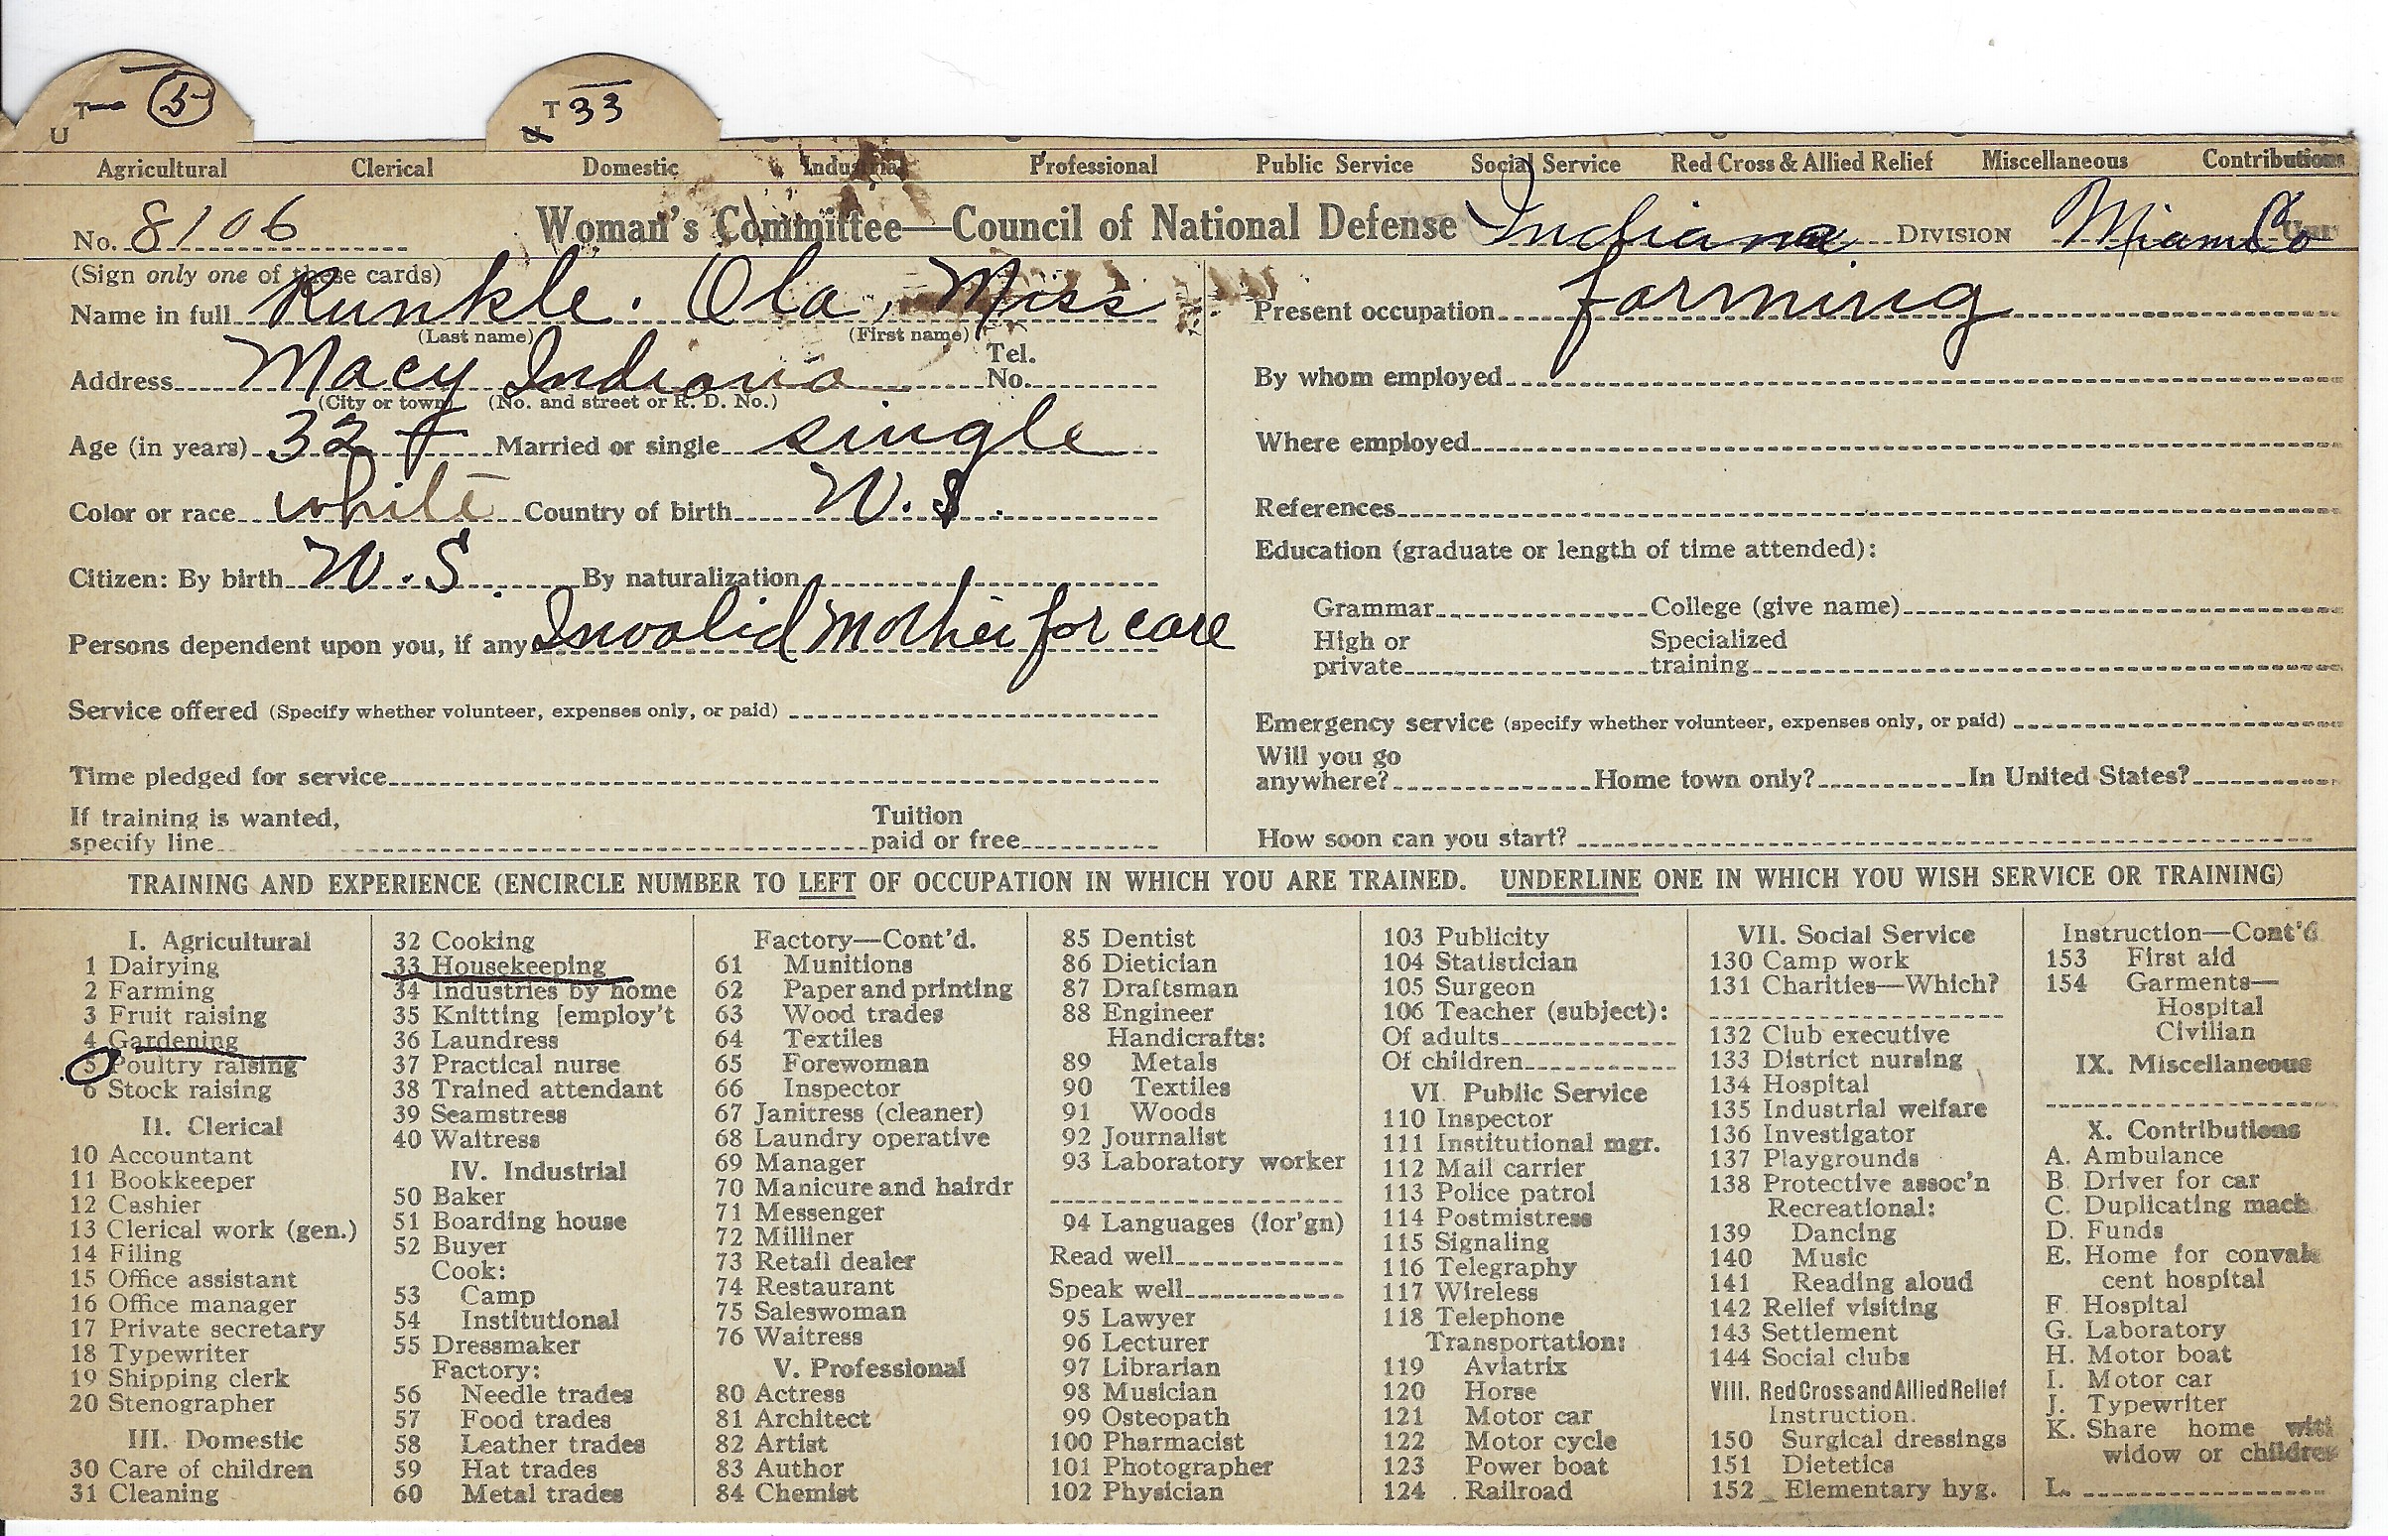 T — 5
U
T 33
U
Agricultural Clerical Domestic Industrial Professional Public Service Social Service Red Cross & Allied Relief Miscellaneous Contributions
No. 8106 Woman's Committee—Council of National Defense Indiana DIVISION Miami Co Unit
(Sign only one of these cards)
Name in full Runkle. Ola, Miss
(Last name) (First name)
Address Macy Indiana Tel. No.
(City or town) (No. and street or R. D. No.)
Age (in years) 32 + Married or single single
Color or race white Country of birth U.S.
Citizen: By birth U.S. By naturalization
Persons dependent upon you, if any Invalid Mother for care
Service offered (Specify whether volunteer, expenses only, or paid)
Time pledged for service
If training is wanted, specify line Tuition paid or free
Present occupation farming
By whom employed
Where employed
References
Education (graduate or length of time attended):
Grammar College (give name)
High or private Specialized training
Emergency service (specify whether volunteer, expenses only, or paid)
Will you go anywhere? Home town only? In United States?
How soon can you start?
TRAINING AND EXPERIENCE (ENCIRCLE NUMBER TO LEFT OF OCCUPATION IN WHICH YOU ARE TRAINED. UNDERLINE ONE IN WHICH YOU WISH SERVICE OR TRAINING)
I. Agricultural
1 Dairying
2 Farming
3 Fruit raising
4 Gardening
5 Poultry raising
6 Stock raising
II. Clerical
10 Accountant
11 Bookkeeper
12 Cashier
13 Clerical work (gen.)
14 Filing
15 Office assistant
16 Office manager
17 Private secretary
18 Typewriter
19 Shipping clerk
20 Stenographer
III. Domestic
30 Care of children
31 Cleaning
32 Cooking
33 Housekeeping
34 Industries by home
35 Knitting [employ't
36 Laundress
37 Practical nurse
38 Trained attendant
39 Seamstress
40 Waitress
IV. Industrial
50 Baker
51 Boarding house
52 Buyer
Cook:
53 Camp
54 Institutional
55 Dressmaker
Factory:
56 Needle trades
57 Food trades
58 Leather trades
59 Hat trades
60 Metal trades
Factory—Cont'd.
61 Munitions
62 Paper and printing
63 Wood trades
64 Textiles
65 Forewoman
66 Inspector
67 Janitress (cleaner)
68 Laundry operative
69 Manager
70 Manicure and hairdr
71 Messenger
72 Milliner
73 Retail dealer
74 Restaurant
75 Saleswoman
76 Waitress
V. Professional
80 Actress
81 Architect
82 Artist
83 Author
84 Chemist
85 Dentist
86 Dietician
87 Draftsman
88 Engineer
Handicrafts:
89 Metals
90 Textiles
91 Woods
92 Journalist
93 Laboratory worker
94 Languages (for'gn)
Read well
Speak well
95 Lawyer
96 Lecturer
97 Librarian
98 Musician
99 Osteopath
100 Pharmacist
101 Photographer
102 Physician
103 Publicity
104 Statistician
105 Surgeon
106 Teacher (subject):
Of adults
Of children
VI. Public Service
110 Inspector
111 Institutional mgr.
112 Mail carrier
113 Police patrol
114 Postmistress
115 Signaling
116 Telegraphy
117 Wireless
118 Telephone
Transportation:
119 Aviatrix
120 Horse
121 Motor car
122 Motor cycle
123 Power boat
124 Railroad
VII. Social Service
130 Camp work
131 Charities—Which?
132 Club executive
133 District nursing
134 Hospital
135 Industrial welfare
136 Investigator
137 Playgrounds
138 Protective assoc'n
Recreational:
139 Dancing
140 Music
141 Reading aloud
142 Relief visiting
143 Settlement
144 Social clubs
VIII. Red Cross and Allied Relief
Instruction.
150 Surgical dressings
151 Dietetics
152 Elementary hyg.
Instruction—Cont'd
153 First aid
154 Garments—
Hospital
Civilian
IX. Miscellaneous
X. Contributions
A. Ambulance
B. Driver for car
C. Duplicating mach
D. Funds
E. Home for convales
cent hospital
F. Hospital
G. Laboratory
H. Motor boat
I. Motor car
J. Typewriter
K. Share home with
widow or children
L.